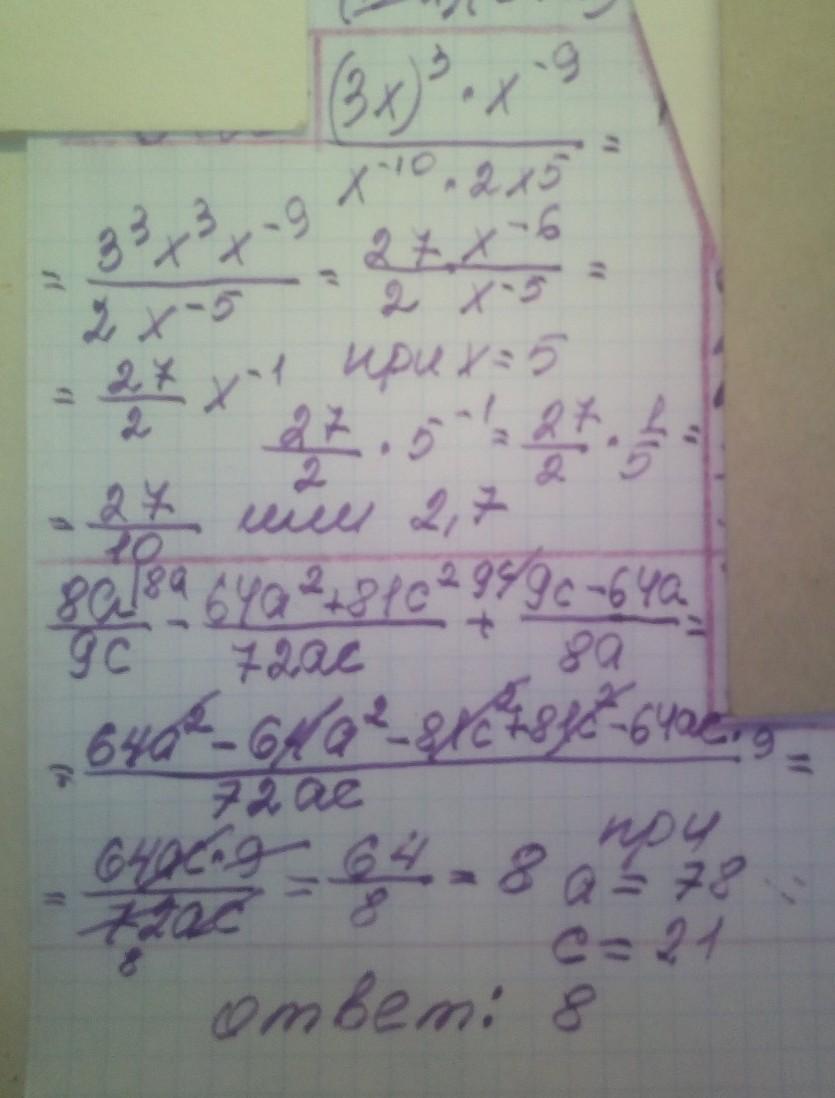 (3x)³ · x⁻⁹
x⁻¹⁰ · 2x5 =
= 3³x³x⁻⁹ / 2x⁻⁵ = 27 x⁻⁶ / 2 x⁻⁵ =
= 27/2 x⁻¹ при x = 5
27/2 · 5⁻¹ = 27/2 · 1/5 =
= 27/10 или 2,7
8a|8a / 9c - 64a²+81c² / 72ac + 9c/ 9c-64a / 8a =
= 64a² - 64a² - 81c² + 81c² - 64ac · 9 / 72ac =
= 64ac · 9 / 72ac = 64/8 = 8 при
8
a = 78
c = 21
ответ: 8